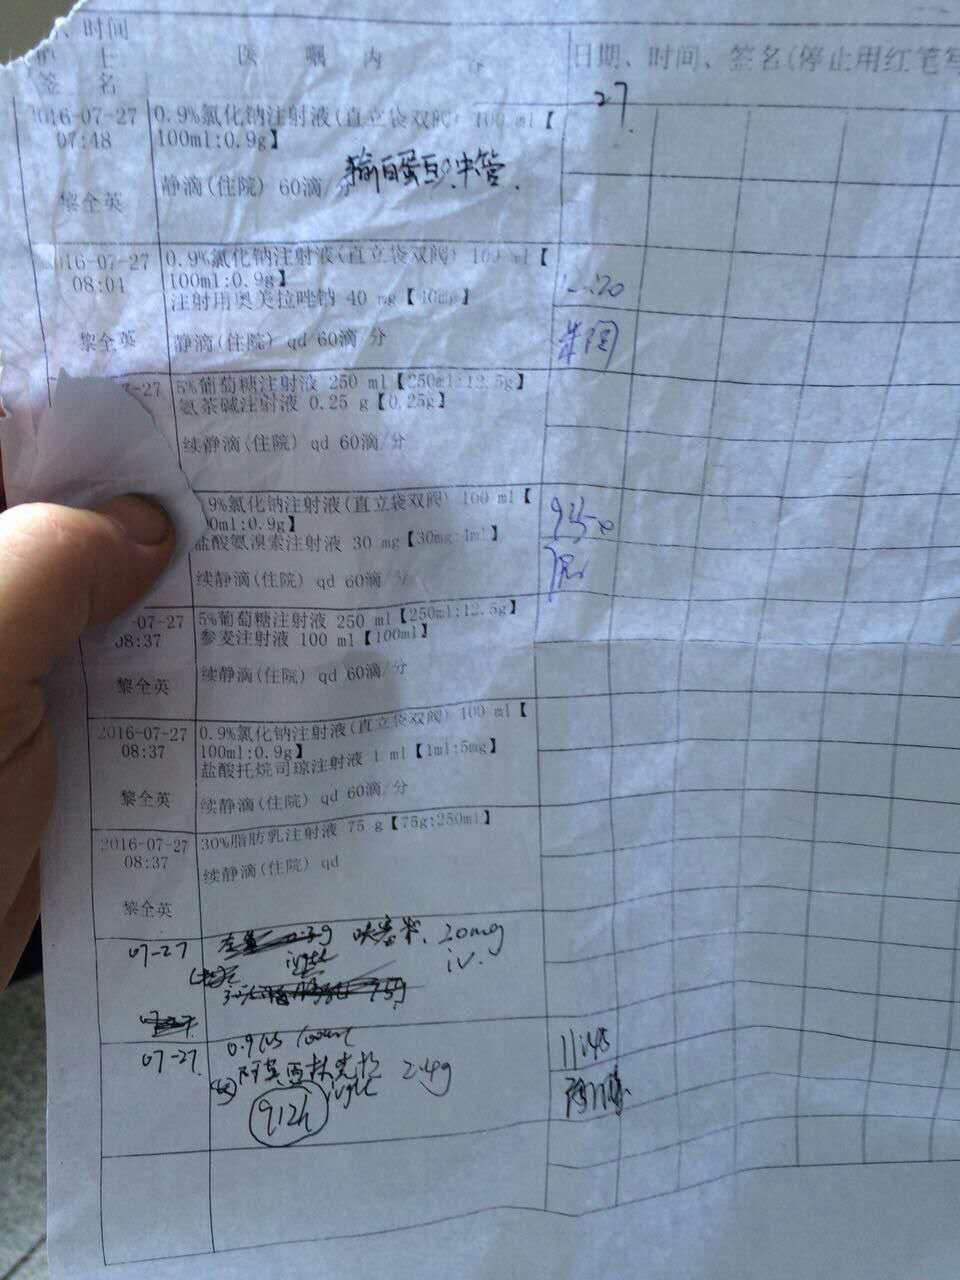 、时间
护士
医嘱内
日期、时间、签名(停止用红笔写
签名
27
2016-07-27
0.9%氯化钠注射液(直立袋双阀) 100 ml【
07:48
100ml:0.9g】
输白蛋白冲管.
静滴(住院) 60滴/分
黎全英
016-07-27
0.9%氯化钠注射液(直立袋双阀) 100 ml【
08:04
100ml:0.9g】
注射用奥美拉唑钠 40 mg【40mg】
黎全英
静滴(住院) qd 60滴/分
7-27
5%葡萄糖注射液 250 ml【250ml:12.5g】
氨茶碱注射液 0.25 g【0.25g】
续静滴(住院) qd 60滴/分
.9%氯化钠注射液(直立袋双阀) 100 ml【
00ml:0.9g】
盐酸氨溴索注射液 30 mg【30mg:4ml】
续静滴(住院) qd 60滴/分
-07-27
5%葡萄糖注射液 250 ml【250ml:12.5g】
08:37
参麦注射液 100 ml【100ml】
续静滴(住院) qd 60滴/分
黎全英
2016-07-27
0.9%氯化钠注射液(直立袋双阀) 100 ml【
08:37
100ml:0.9g】
盐酸托烷司琼注射液 1 ml【1ml:5mg】
黎全英
续静滴(住院) qd 60滴/分
2016-07-27
30%脂肪乳注射液 75 g【75g:250ml】
08:37
续静滴(住院) qd
黎全英
07-27
呋塞米. 20mg
iv.
07-27
0.9%NS 100ml
11:45
阿莫西林克拉 2.4g
ivgtt
q12h